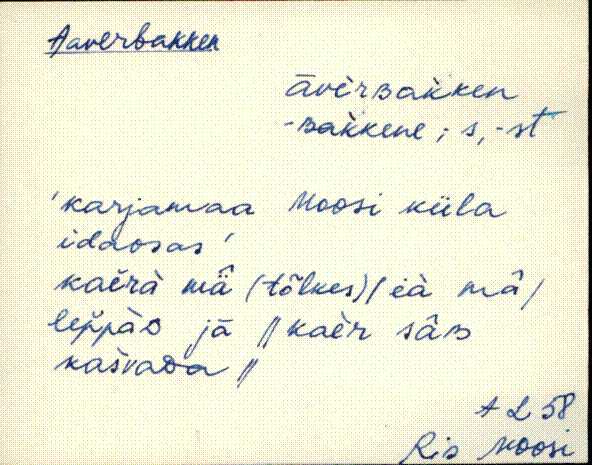 Aaverbakken
āvèrʙak̀ken
-ʙak̀kene; s, -st
'karjamaa Moosi küla
idaosas'
kaèrà mä̂ (tõlkes) / eà mâ /
lep̆pàᴅ jā // kaèr sâʙ
kašvaᴅa //
A L 58
Rid Moosi